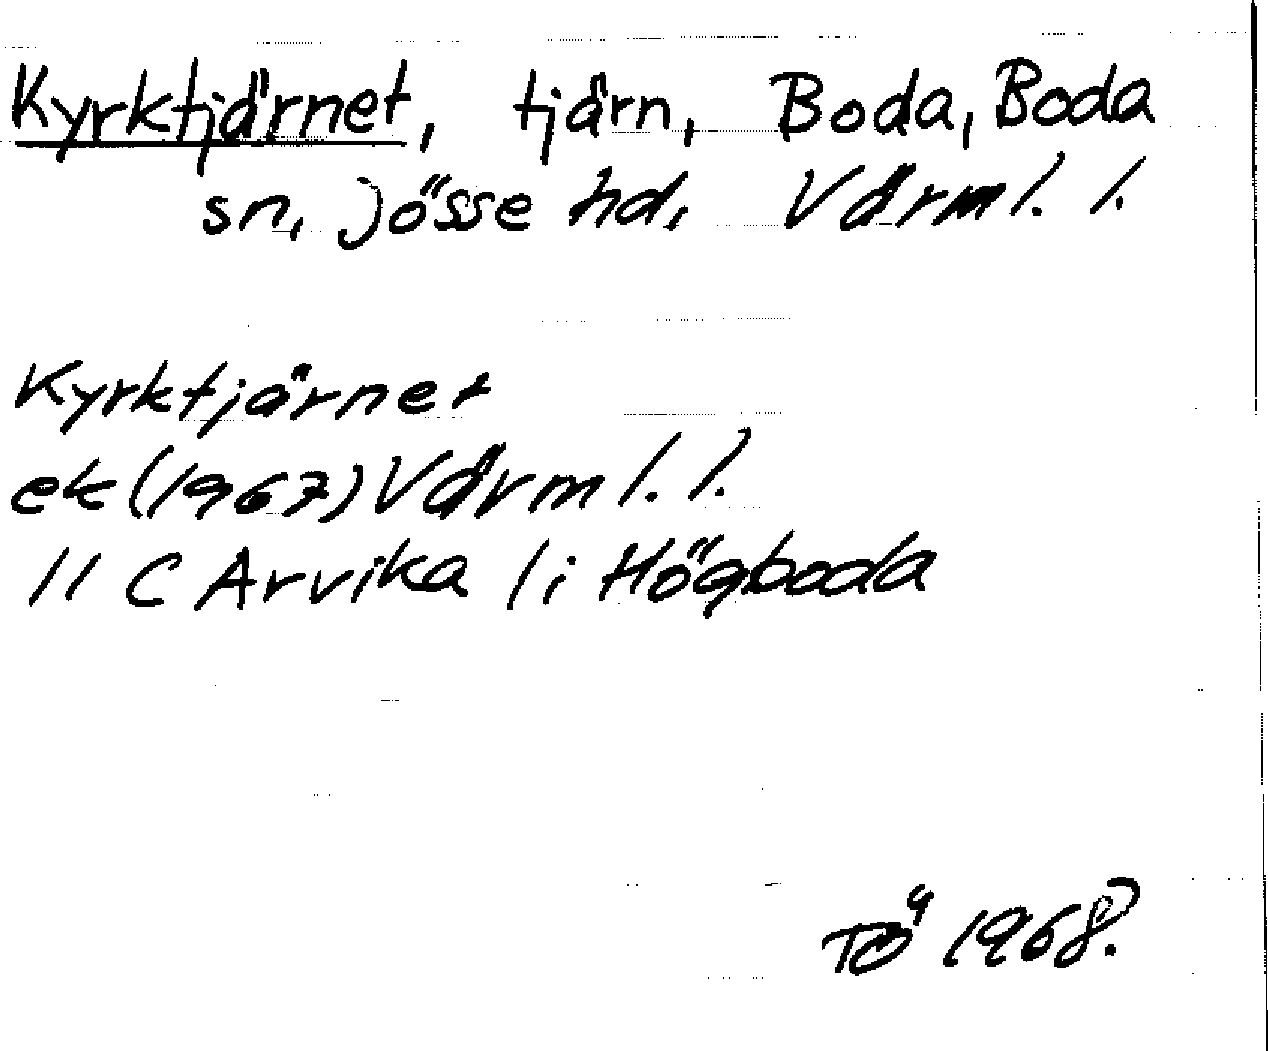 Kyrktjärnet, tjärn, Boda, Boda
sn, Jösse hd, Värml. l.
Kyrktjärnet
ek (1967) Värml. l.
11 C Arvika / i Högboda
TÖ 1968?